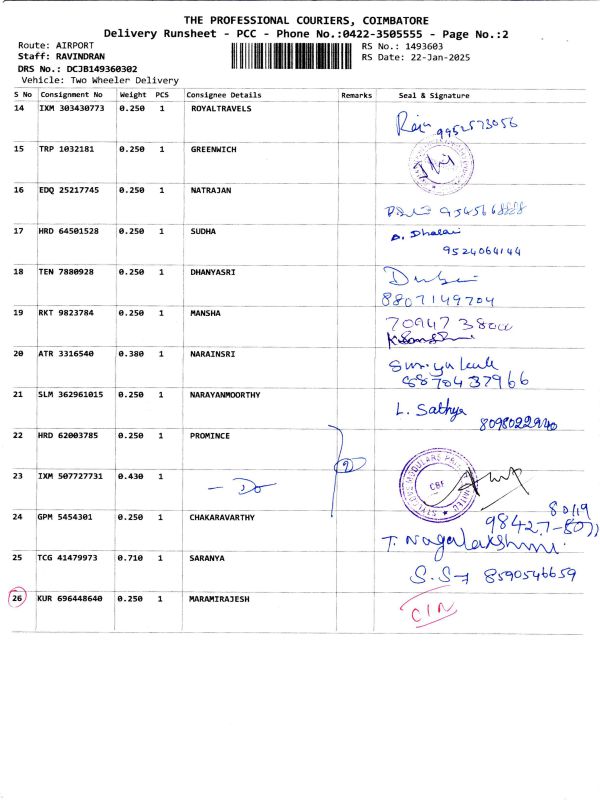 THE PROFESSIONAL COURIERS, COIMBATORE
Delivery Runsheet - PCC - Phone No.:0422-3505555 - Page No.:2
Route: AIRPORT RS No.: 1493603
Staff: RAVINDRAN RS Date: 22-Jan-2025
DRS No.: DCJB149360302
Vehicle: Two Wheeler Delivery
S No Consignment No Weight PCS Consignee Details Remarks Seal & Signature
14 IXM 303430773 0.250 1 ROYALTRAVELS
9952573056
15 TRP 1032181 0.250 1 GREENWICH
16 EDQ 25217745 0.250 1 NATRAJAN
17 HRD 64501528 0.250 1 SUDHA A. Dhalai
9524064144
18 TEN 7880928 0.250 1 DHANYASRI
8807149704
19 RKT 9823784 0.250 1 MANSHA
20 ATR 3316540 0.380 1 NARAINSRI
8870437966
21 SLM 362961015 0.250 1 NARAYANMOORTHY L. Sathya
8098022940
22 HRD 62003785 0.250 1 PROMINCE
CBE
23 IXM 507727731 0.430 1 - Do
24 GPM 5454301 0.250 1 CHAKARAVARTHY
T. Nagalakshmi
25 TCG 41479973 0.710 1 SARANYA
8590546659
26 KUR 696448640 0.250 1 MARAMIRAJESH